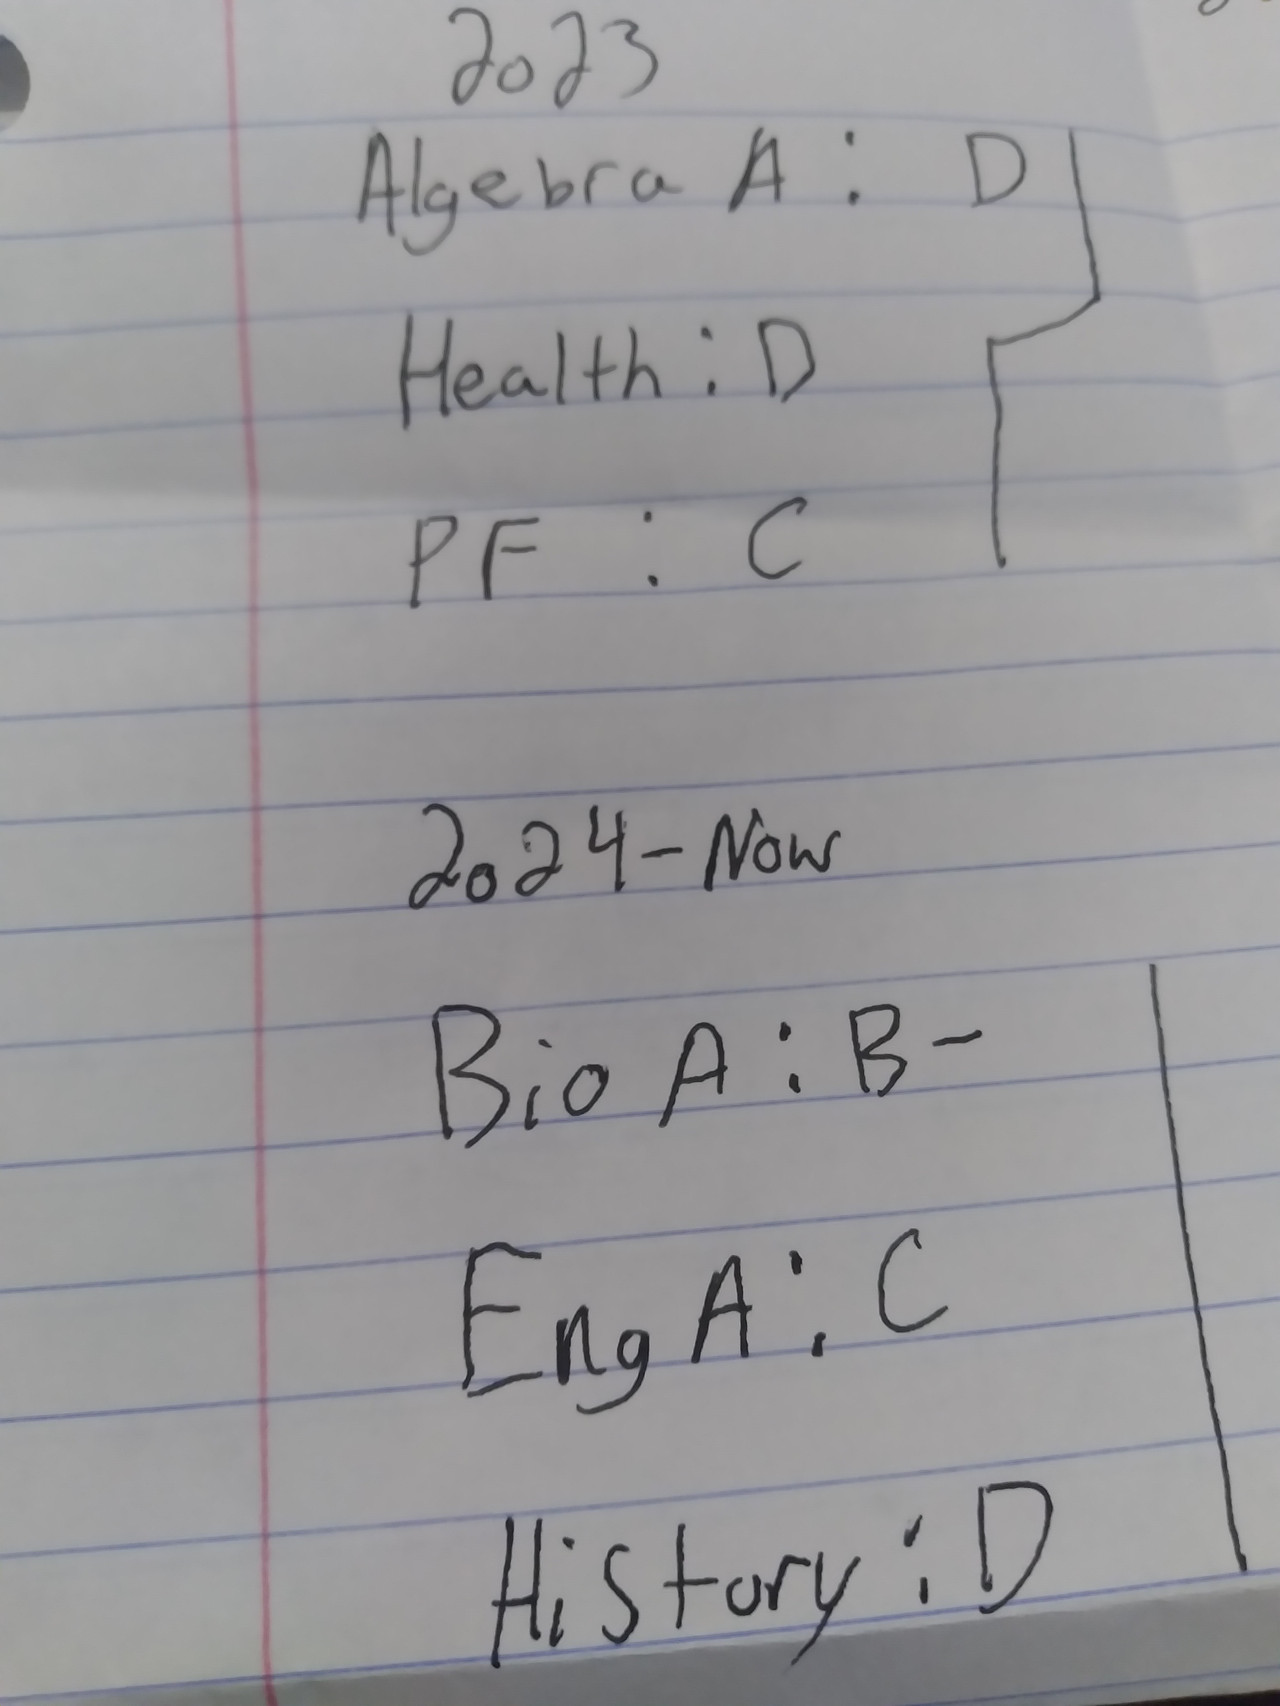 2023
Algebra A: D
Health: D
PF : C
2024-Now
Bio A: B-
Eng A: C
History: D